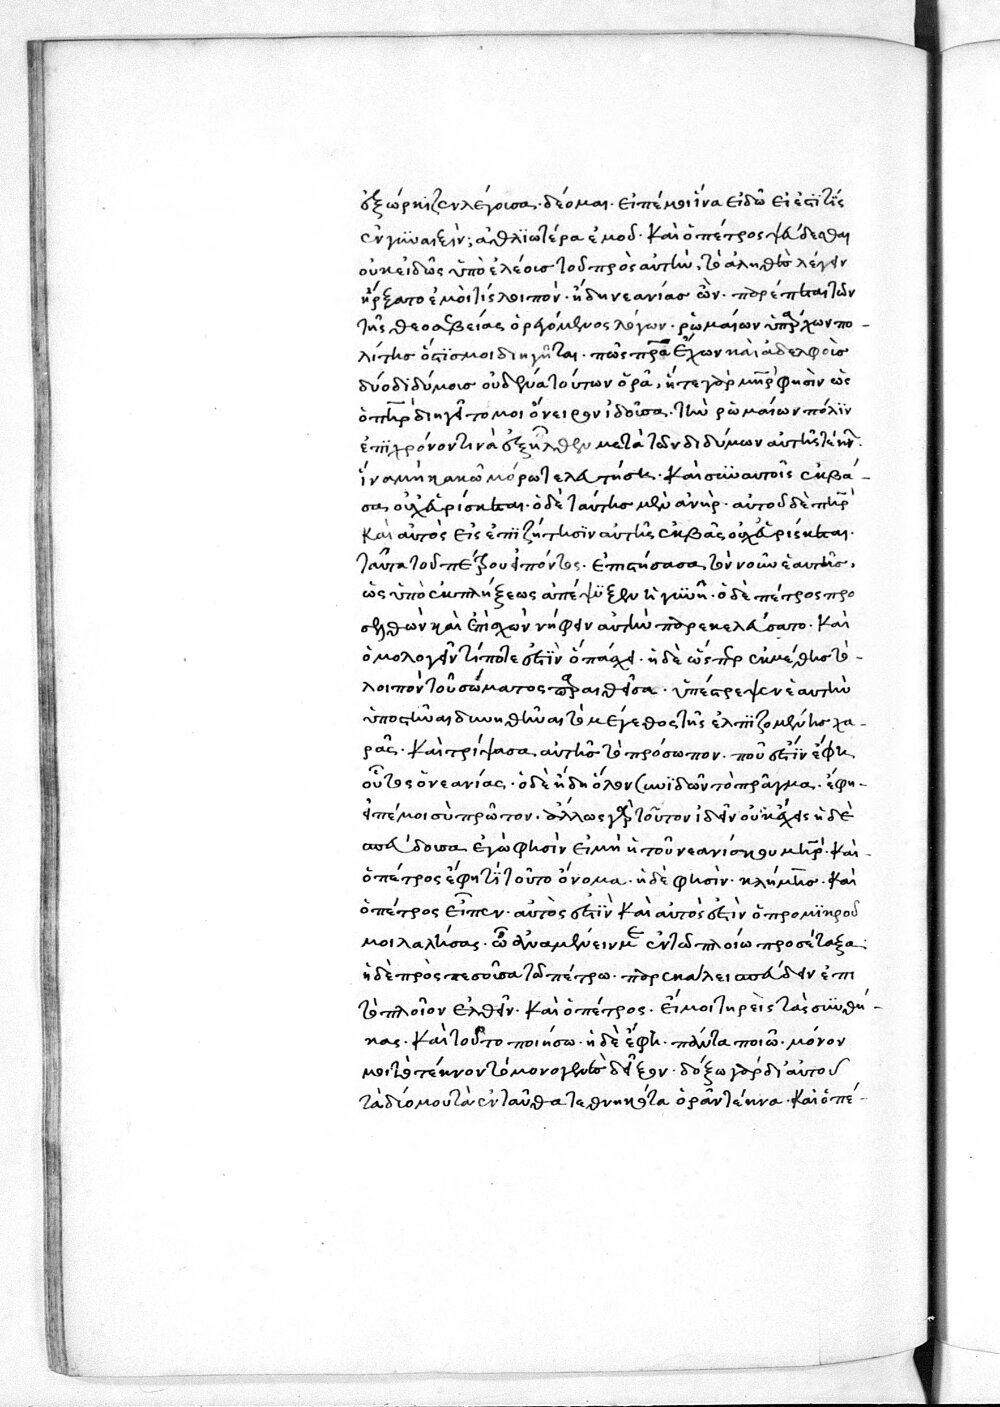 ἐξώρκιζεν λέγουσα· δέομαι· εἰπέ μοι ἵνα εἰδῶ εἰ ἔστί τίς
ἐν γυναιξὶν; ἀθλιωτέρα ἐμοῦ· Καὶ ὁ πέτρος ψεύδεσθαι
οὐκ εἰδὼς ὑπὸ ἐλέους τοῦ πρὸς αὐτὴν, τὸ ἀληθὲς λέγειν
ἤρξατο ἐμοὶ τίς λοιπὸν· ἤδη νεανίας ὢν· παρέπεται τῶν
τῆς θεοσεβείας ὀρεγόμενος λόγων· ῥωμαίων ὑπάρχων πο-
λίτης ὅστις μοι διηγεῖται· πῶς πρα ἔχων καὶ ἀδελφοὺς
δύο διδύμους οὐδένα τούτων ὁρᾶ, ἥτε γὰρ μηρ φησὶν ὡς
ὁ πηρ διηγεῖτό μοι ὄνειρον ἰδοῦσα· τὴν ῥωμαίων πόλιν
ἐπὶ χρόνον τινὰ ἐξῆλθεν μετὰ τῶν διδύμων αὐτῆς τέκν·
ἵνα μὴ κακῶ μόρω τελευτήση· Καὶ σὺν αὐτοῖς ἐκβᾶ-
σα οὐχ εὑρίσκεται· ὁ δὲ ταύτης μὲν ἀνὴρ· αὐτοῦ δὲ πηρ
Καὶ αὐτὸς εἰς ἐπιζήτησιν αὐτῆς ἐκβὰς οὐχ εὑρίσκεται·
ταῦτα τοῦ πέτρου εἰπόντος· ἐπιστήσασα τὸν νοῦν ἑαυτῆς,
ὡς ὑπὸ ἐκπλήξεως ἀπέψυξεν ἡ γυνὴ· ὁ δὲ πέτρος προ
σελθὼν καὶ ἐπισχὼν νήφειν αὐτὴν παρεκελεύσατο· Καὶ
ὁμολογεῖν τί ποτε ἐστὶν ὃ πάσχει· ἡ δὲ ὥσπερ ἐκ μέθης τὸ-
λοιπὸν τοῦ σώματος παραιθεῖσα· ὑπέστρεψεν ἑαυτὴν
ὑποστῆναι δυνηθῆναι τὸ μέγεθος τῆς ἐλπιζομένης χα-
ρᾶς· Καὶ τρίψασα αὐτῆς τὸ πρόσωπον· ποῦ ἐστὶν ἔφη
οὗτος ὁ νεανίας· ὁ δὲ ἤδη ὅλον συνϊδὼν τὸ πρᾶγμα· ἔφη-
εἰπέ μοι σὺ πρῶτον· ἄλλως γὰρ τοῦτον ἰδεῖν οὐκ ἔχεις ἡ δὲ
σπεύδουσα ἐγὼ φησὶν εἰμὴ ἡ τοῦ νεανίσκου μηρ· Καὶ-
ὁ πέτρος ἔφη τί τούτο ὄνομα· ἡ δὲ φησὶν· κλήμης· Καὶ
ὁ πέτρος εἶπεν· αὐτὸς ἐστὶν Καὶ αὐτὸς ἐστὶν ὁ πρὸ μικροῦ
μοι λαλήσας· ὃν ἀναμένειν με ἐν τῶ πλοίω προσέταξα·
ἡ δὲ προσπεσοῦσα τῶ πέτρω· παρεκάλει σπεύδειν ἐπι
τὸ πλοῖον ἐλθεῖν· Καὶ ὁ πέτρος· εἴ μοι τηρεῖς τὰς συνθή-
κας· Καὶ τοῦτο ποιήσω· ἡ δὲ ἔφη· πάντα ποιῶ· μόνον
μοι τὸ τέκνον τὸ μονογενὲς δεῖξον· δόξω γὰρ δι' αὐτοῦ
τὰ δύο μου τὰ ἐνταῦθα τεθνηκότα ὁρᾶν τέκνα· Καὶ ὁ πέ-